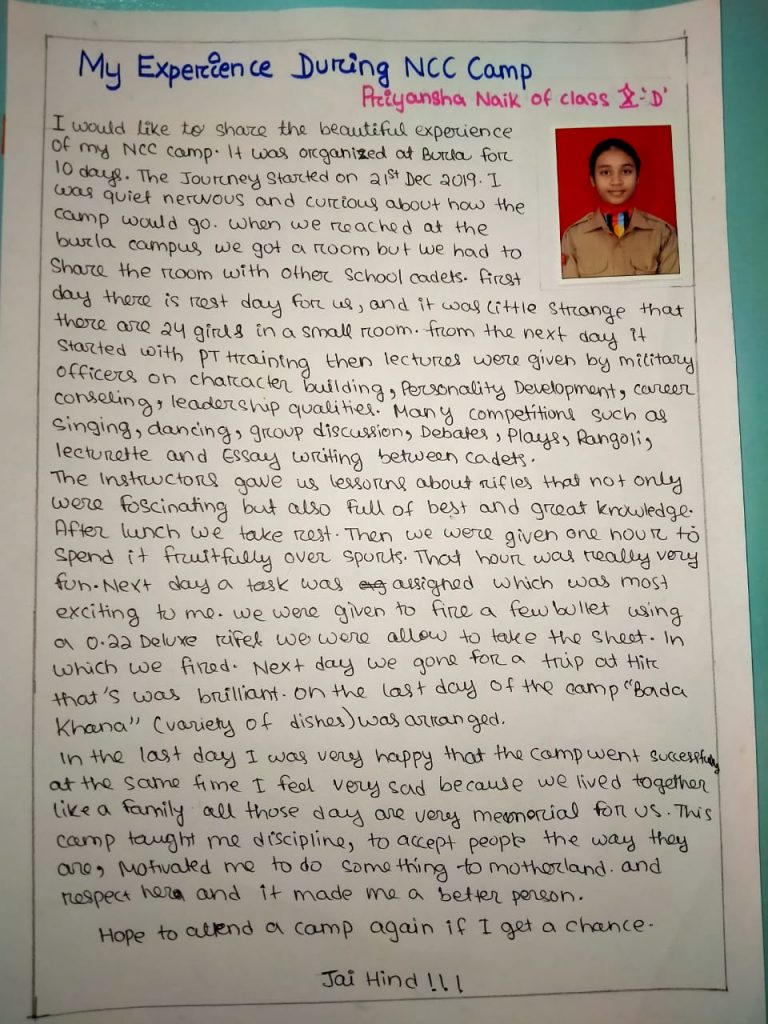 My Experience During NCC Camp
Priyansha Naik of class X-'D'
I would like to share the beautiful experience
of my NCC camp. It was organized at Burla for
10 days. The Journey started on 21st Dec 2019. I
was quiet nervous and curious about how the
camp would go. when we reached at the
burla campus we got a room but we had to
Share the room with other school cadets. first
day there is rest day for us, and it was little strange that
there are 24 girls in a small room. from the next day it
started with PT training then lectures were given by military
officers on character building, Personality Development, career
conseling, leadership qualities. Many competitions such as
singing, dancing, group discussion, Debates, Plays, Rangoli,
lecturette and Essay writing between cadets.
The Instructors gave us lessons about rifles that not only
were foscinating but also full of best and great knowledge.
After lunch we take rest. Then we were given one hour to
spend it fruitfully over sports. That hour was really very
fun. Next day a task was assigned which was most
exciting to me. we were given to fire a few bullet using
a 0.22 Deluxe rifel we were allow to take the sheet. In
which we fired. Next day we gone for a trip at Hir
that's was brilliant. on the last day of the camp "Bada
Khana" (variety of dishes) was arranged.
In the last day I was very happy that the camp went successfully
at the same time I feel very sad because we lived together
like a family all those day are very memorial for us. This
camp taught me discipline, to accept people the way they
are, Motivated me to do something to motherland. and
respect her and it made me a better person.
Hope to attend a camp again if I get a chance.
Jai Hind !!!